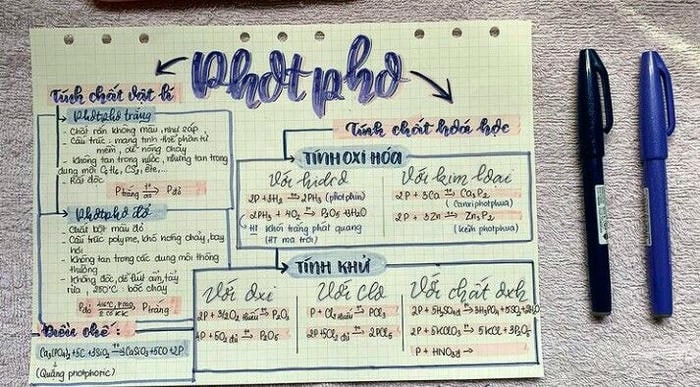 Phốtpho
Tính chất vật lí
Phốtpho trắng
- Chất rắn không màu, như sáp
- Cấu trúc: mạng tinh thể phân tử
mềm, dễ nóng chảy
- Không tan trong nước, nhưng tan trong
dung môi C₆H₆, CS₂, ete,...
- Rất độc
P trắng → P đỏ
Phốtpho đỏ
- Chất bột màu đỏ
- Cấu trúc polyme, khó nóng chảy, bay
hơi
- Không tan trong các dung môi thông
thường
- Không độc, dễ hút ẩm, tảy
rữa, 250°C: bốc cháy
P đỏ → P trắng
Điều chế:
Ca₃(PO₄)₂ + 5C + 3SiO₂ → 3CaSiO₃ + 5CO + 2P
(Quặng photphoric)
Tính chất hoá học
TÍNH OXI HÓA
Với hidro
2P + 3H₂ → 2PH₃ (photphin)
2PH₃ + 4O₂ → P₂O₅ + 3H₂O
HT khói trắng phát quang
(HT ma trơi)
Với kim loại
2P + 3Ca → Ca₃P₂
(Canxi photphua)
2P + 3Zn → Zn₃P₂
(Kẽm photphua)
TÍNH KHỬ
Với oxi
2P + 3/2O₂ thiếu → P₂O₃
4P + 5O₂ dư → P₂O₅
Với clo
P + Cl₂ thiếu → PCl₃
2P + 5Cl₂ dư → 2PCl₅
Với chất oxh
2P + 5H₂SO₄ → 2H₃PO₄ + 5SO₂ + 2H₂O
2P + 5KClO₃ → 5KCl + 3P₂O₅
P + HNO₃ →